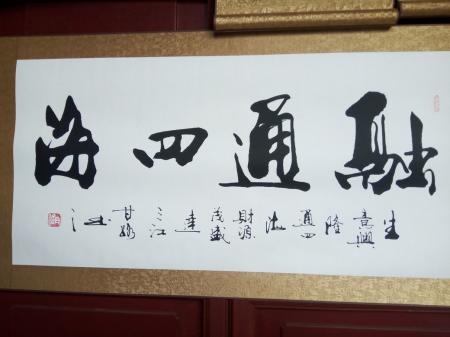 融通四海
生意興隆通四海財源茂盛達三江甘